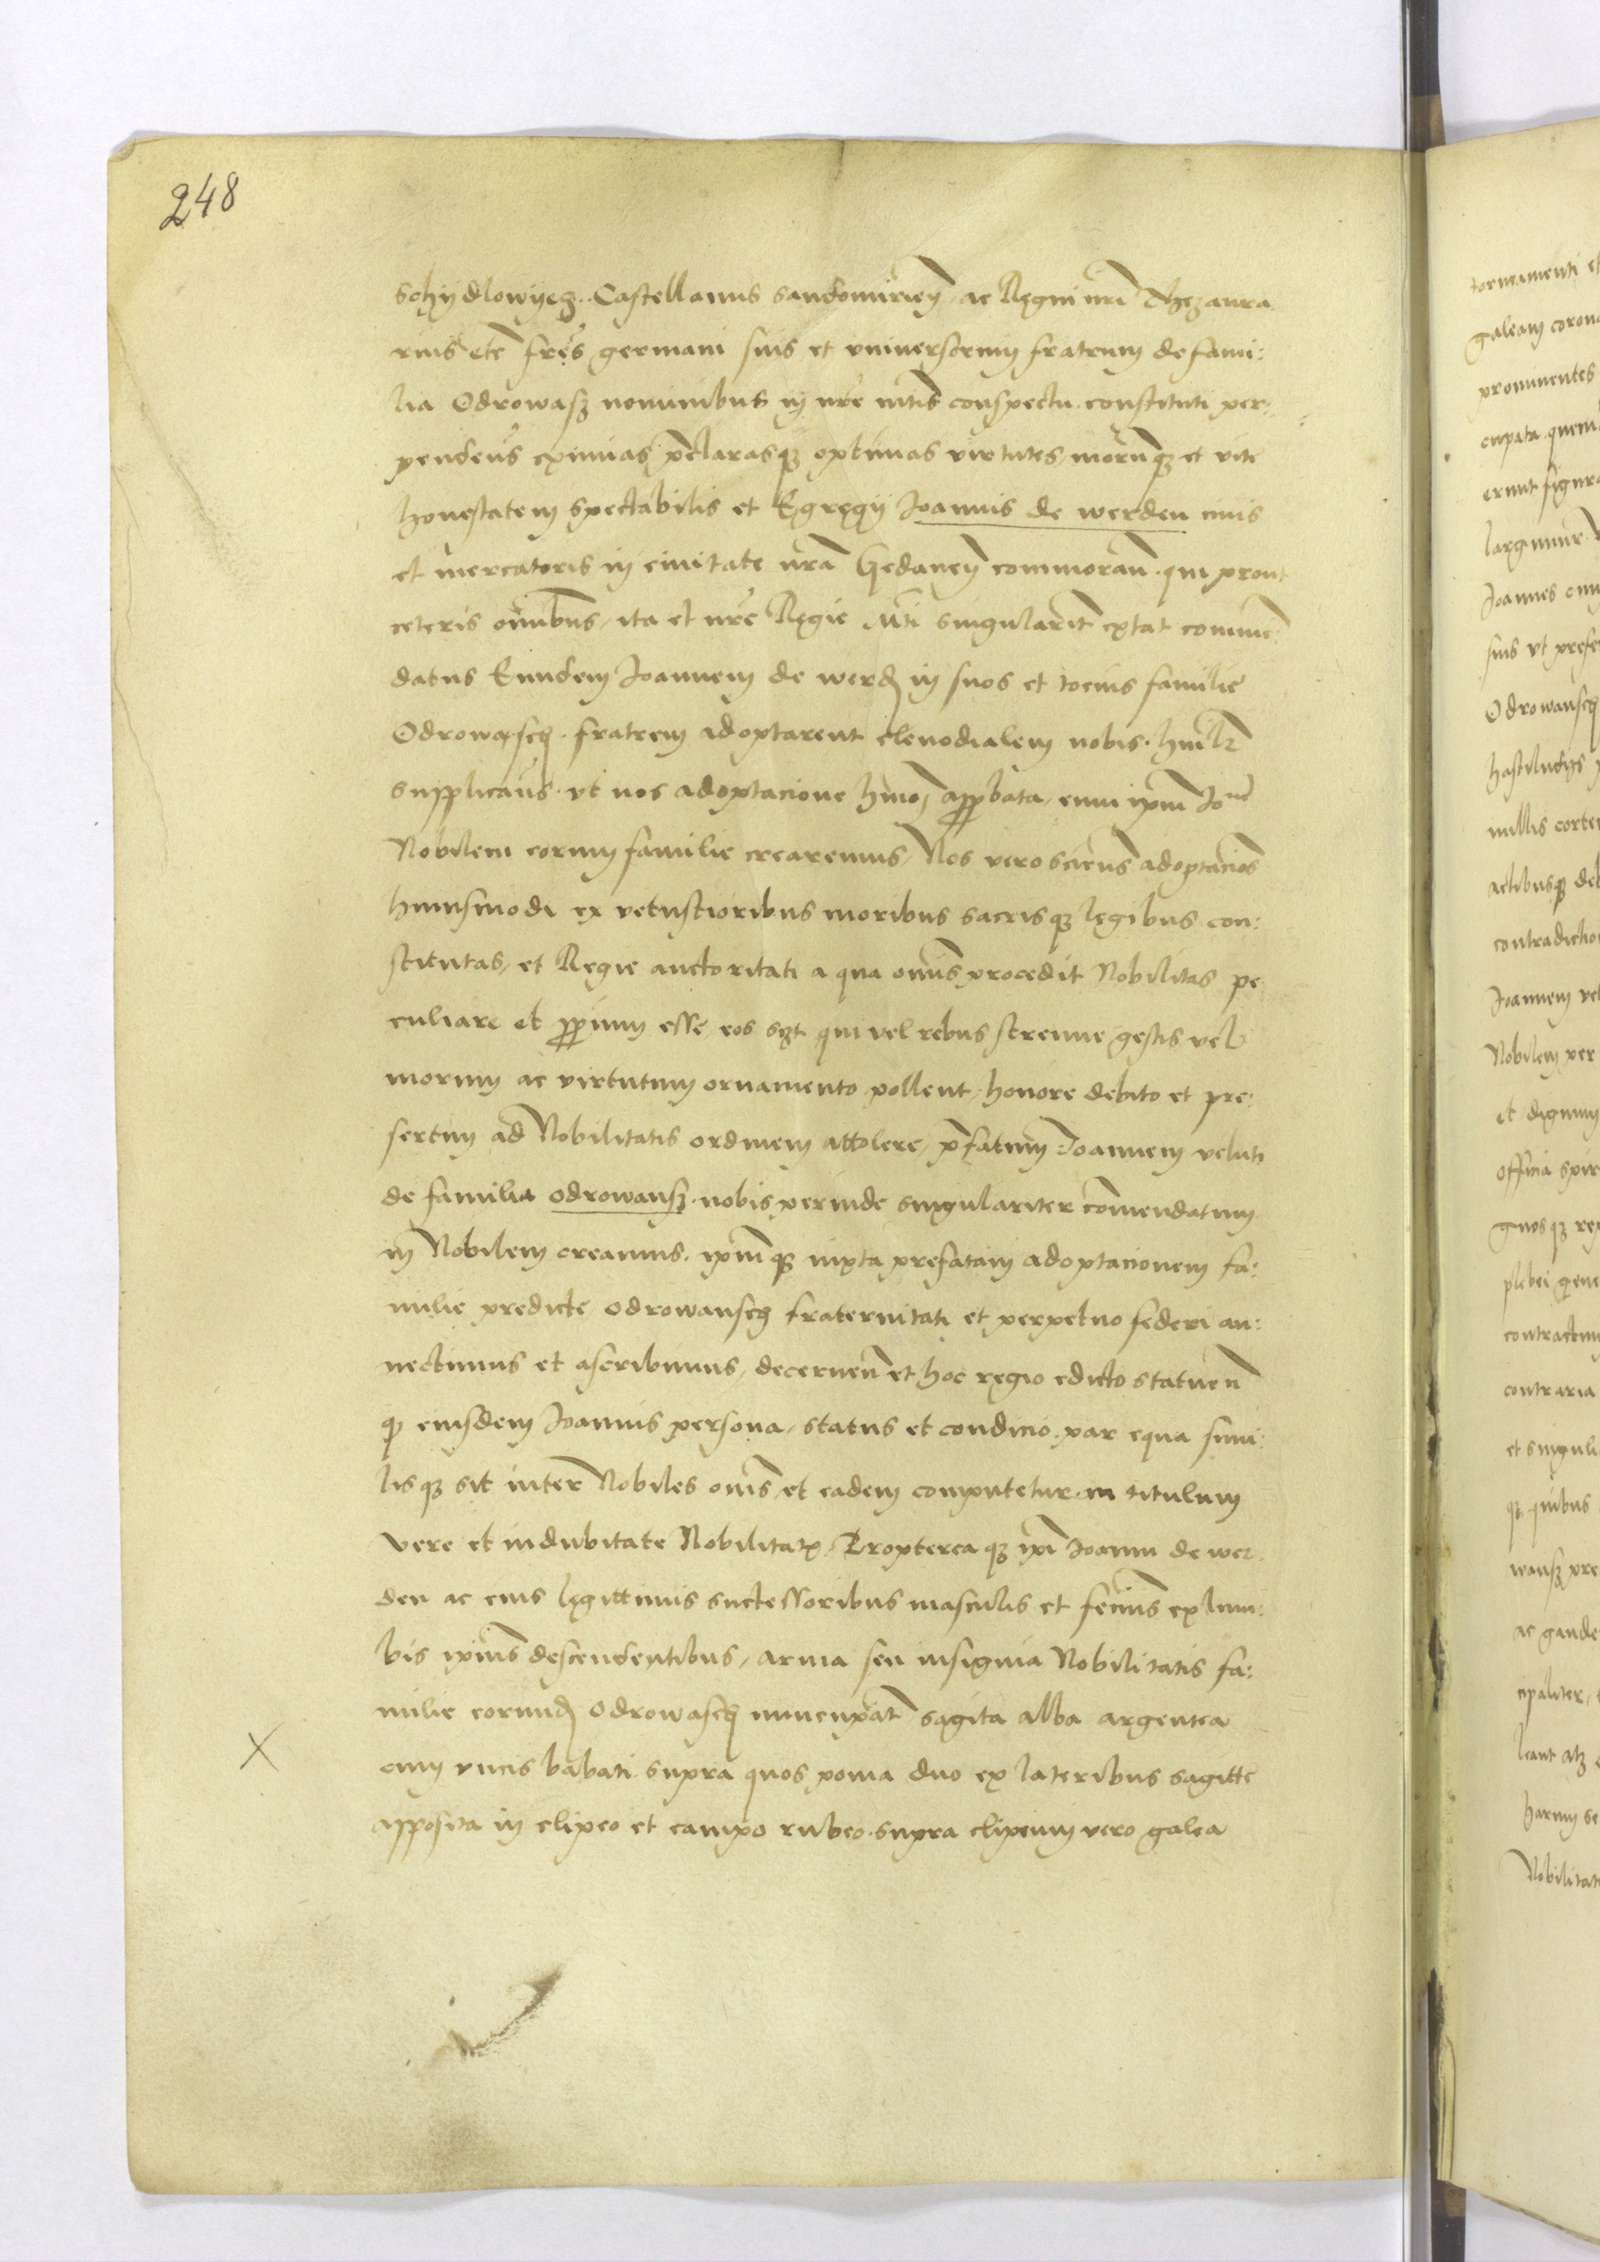 248
Schijdlowijecz. Castellanus Sandomirień ac Regni nrī Thezaura
rius etc̄ frēs germani suis et vniversorum fratrum de fami:
lia Odrowasz nominibus in nrē mtis conspectu constituti per
pendens eximias p̄clarasqz optimas virtutes morumqz et vite
honestatem spectabilis et Egregij Joannis de werden civis
et mercatoris in civitate nrā Gedaneñ commorañ. qui prout
ceteris omībus, ita et nrē Regie Mti singularit extat commē
datus Eundem Joannem de werd in suos et tocius familie
Odrowasch fratrem adoptarent clenodialem nobis humlr
supplicans vt nos adoptacione hmōi approbata, eum ipm Joneˉ
Nobilem eorum familie crearemus, Nos vero sciens adoptacioēs
huiusmodi ex vetustioribus moribus sacrisqz legibus con:
stitutas, et Regie auctoritati a qua omīs procedit Nobilitas pe
culiare et ppriium esse, eos szt qui vel rebus strenue gestis vel
morum ac virtutum ornamento pollent, honore debito et pre:
sertim ad Nobilitatis ordinem attolere, p̄fatum Joannem veluti
de familia Odrowansz. nobis perinde singulariter com̄endatum
in Nobilem creamus. ipmqz iuxta prefatam adoptacionem fa:
milie predicte Odrowansch fraternitati et perpetuo federi an:
nectimus et ascribimus, decerneñ et hoc regio edicto statueñ
qz eiusdem Joannis persona, status et condicio. par equa simi:
lisqz sit inter Nobiles om̄s, et eadem computetur. in titulum
vere et indubitate Nobilitatis, Propterea qz ipī Joanni de wer
den ac eius legittimis successoribus masculis et femīs ex lum:
bis ipius descendentibus, arma seu insignia Nobilitatis fa:
milie eorund Odrowasch nuncupat̄ sagita alba argentea
cum vncis babati supra quos poma duo ex lateribus sagitte
apposita in clipeo et campo rubeo. supra clipeum vero galea
X
tornamenti et
galeam coron
prominentes
cupata quem
erunt figura
largimur
Joannes
suis vt prefe
Odrowansch
hastiludijs
nullis corte
actibusqz deb
contradictio
Joannem vel
Nobilem ver
et dignum
officia spir
gnosqz re
plebei gene
contractum
contraria
et singuli
qz quibus
wansz pre
ac gaude
cipaliter,
leant atz
harum se
Nobilitat